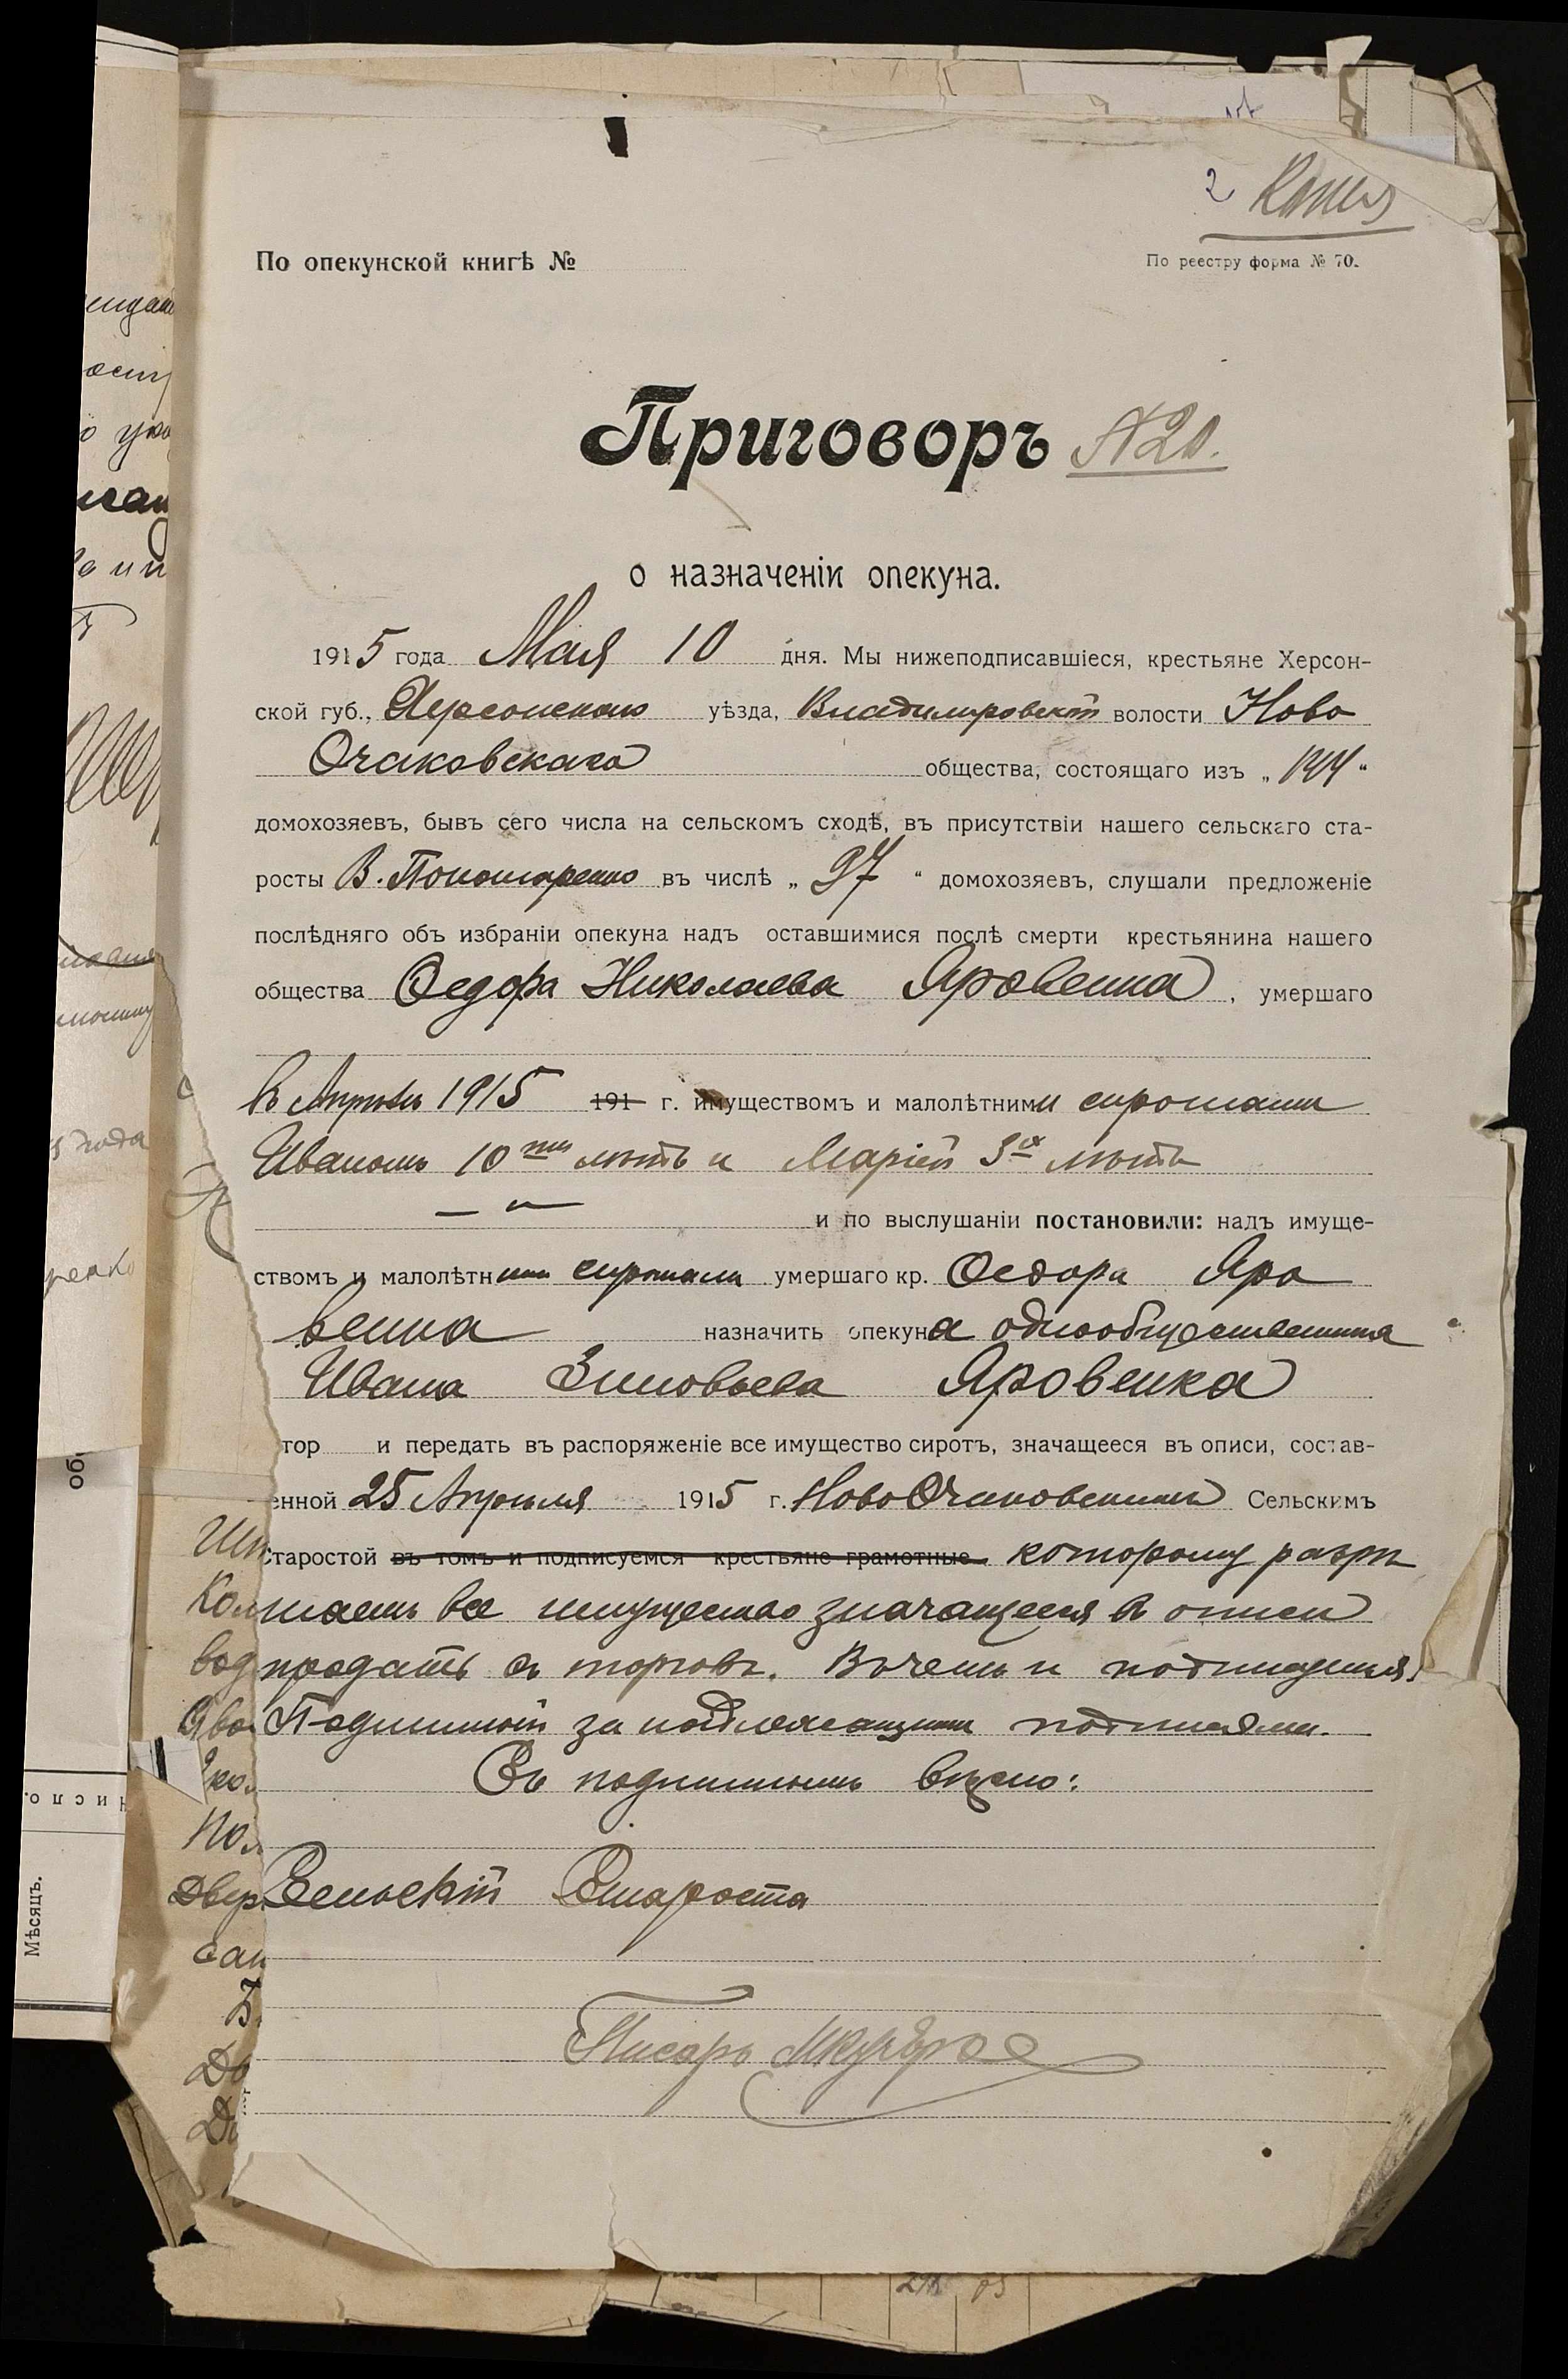 2 Копія
По опекунской книгѣ №
По реестру форма № 70.
Приговоръ №20.
о назначеніи опекуна.
1915 года Мая 10 дня. Мы нижеподписавшіеся, крестьяне Херсон-
ской губ., Херсонскаго уѣзда, Владимировской волости Ново
Очаковскаго общества, состоящаго изъ „ 144 “
домохозяевъ, бывъ сего числа на сельскомъ сходѣ, въ присутствіи нашего сельскаго ста-
росты В. Пономаренко въ числѣ „ 97 “ домохозяевъ, слушали предложеніе
послѣдняго объ избраніи опекуна надъ оставшимися послѣ смерти крестьянина нашего
общества Ѳедора Николаева Яровенка, умершаго
въ Апрѣлѣ 1915 191 г. имуществомъ и малолѣтними сиротами
Иваномъ 10ти лѣтъ и Маріей 3х лѣтъ
— " —
и по выслушаніи постановили: надъ имуще-
ствомъ и малолѣтними сиротами умершаго кр. Ѳедора Яро
венка назначить опекуна однообщественника
Ивана Зиновьева Яровенка
тор и передать въ распоряженіе все имущество сиротъ, значащееся въ описи, состав-
енной 25 Апрѣля 1915 г. Ново Очаковскимъ Сельскимъ
Старостой въ томъ и подписуемся крестьяне грамотные которому разрѣ
шаемъ все имущество значащееся въ описи
продать съ торговъ. Въ чемъ и подпишемся
Подлинный за надлежащими подписями.
Съ подлиннымъ вѣрно:
Сельскій Староста
Писарь